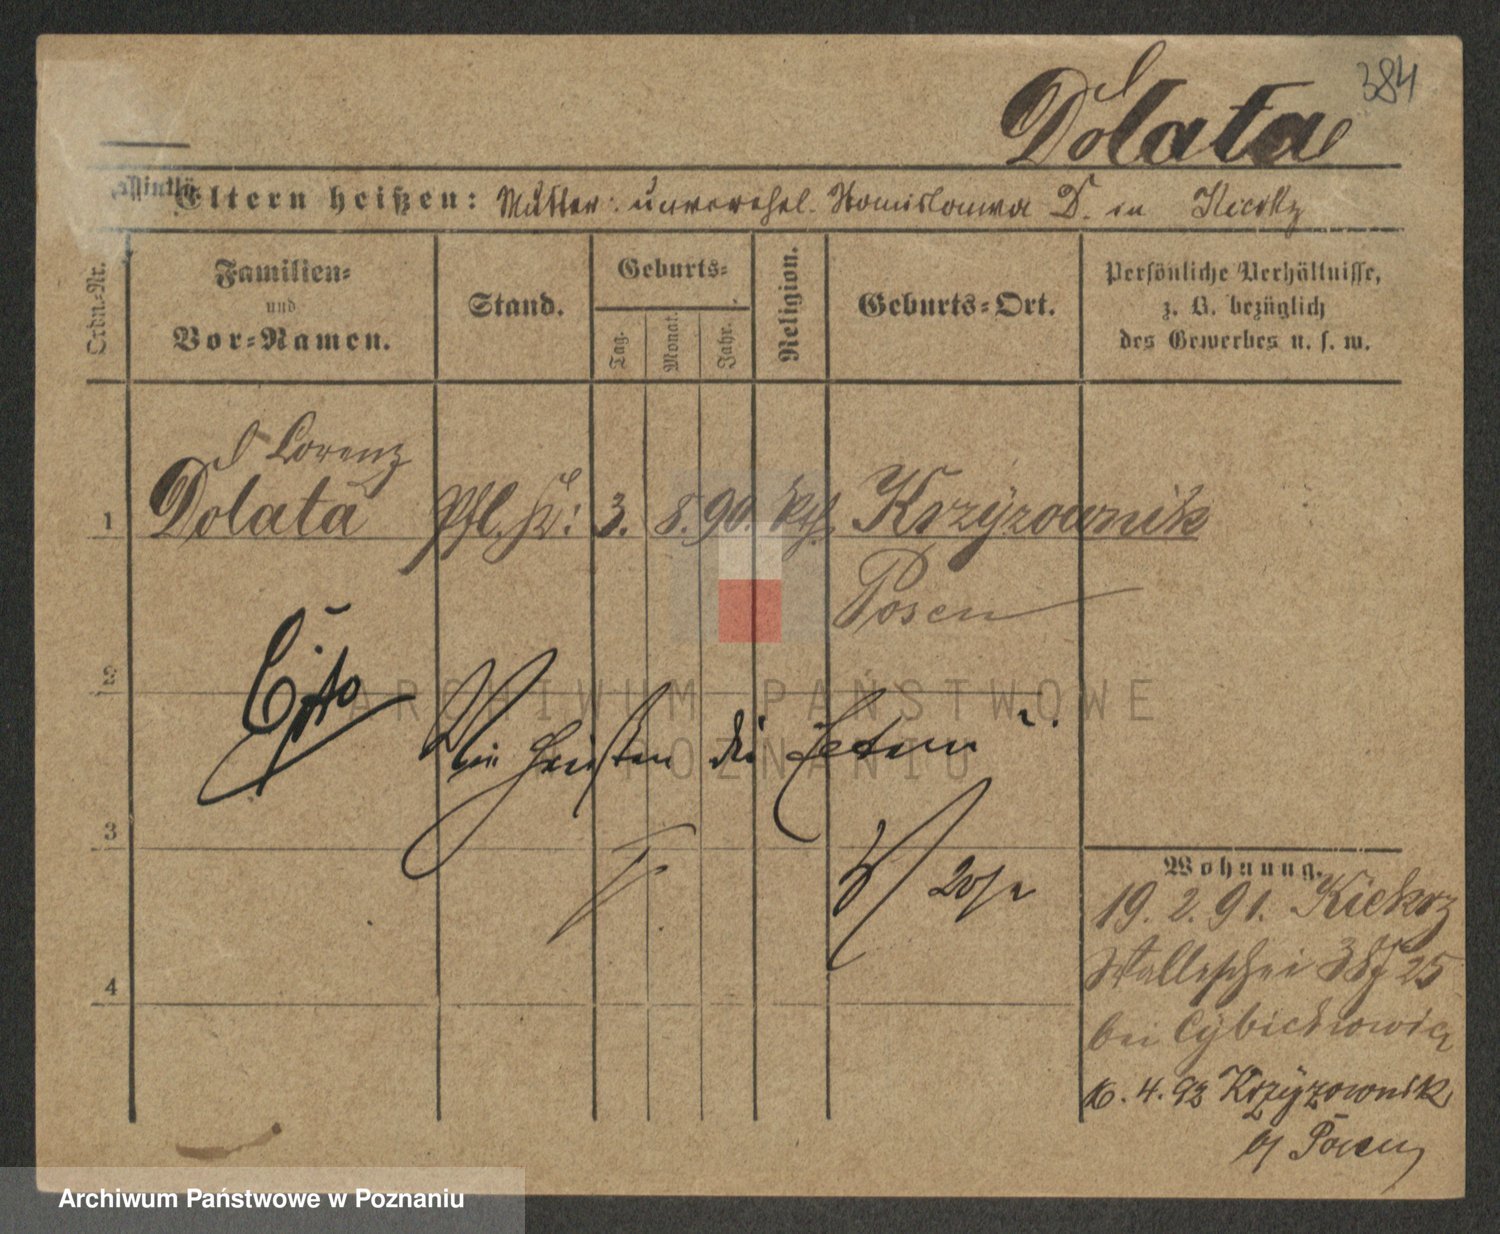 384
Dolata
Eltern heißen: Mutter: unverehel. Stanislawa D. in Kiekrz
Ordn.-Nr.
Familien- und Vor-Namen.
Stand.
Geburts-
Tag.
Monat.
Jahr.
Religion.
Geburts-Ort.
Persönliche Verhältnisse,
z. B. bezüglich
des Gewerbes u. s. w.
Lorenz
1 Dolata Pfl. 3. 8. 90. kth. Krzyzownik
Posen
Cito
2
Wie heißen die Eltern?
3
20/2
4
Wohnung.
19. 2. 91. Kiekrz
Wallischei 25
bei Cybichowicz
16. 4. 92 Krzyzownik
b/ Posen
ARCHIWUM PAŃSTWOWE
POZNANIU
Archiwum Państwowe w Poznaniu